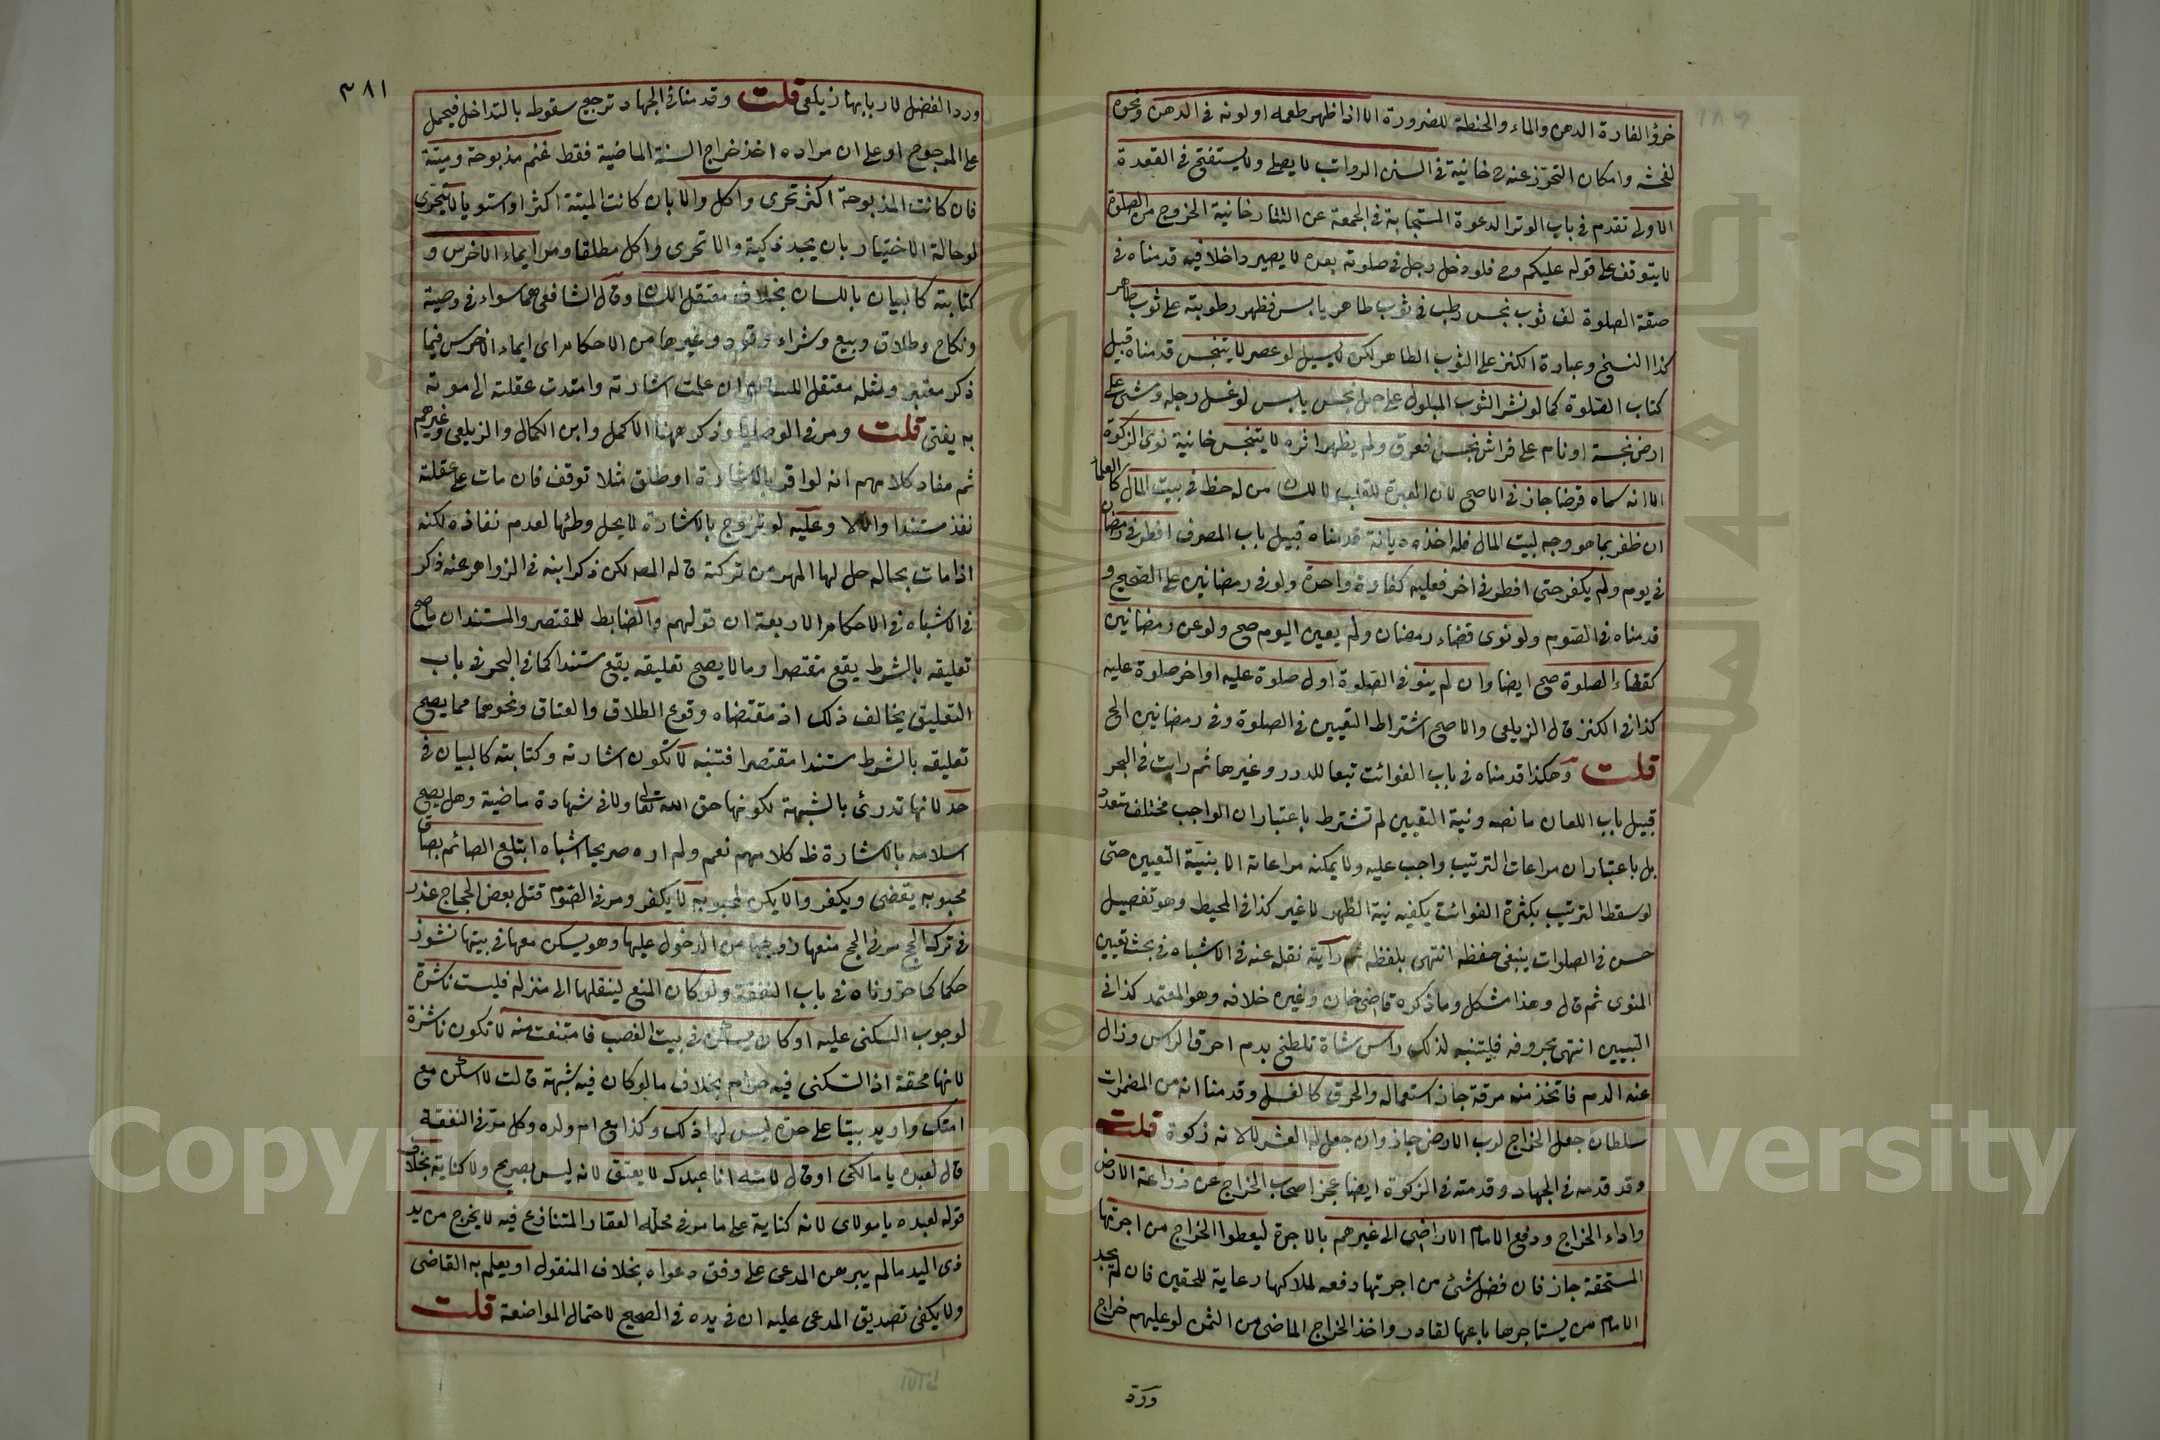 خرؤ الفارة الدهن والماء والحنطة للضرورة الا اذا ظهر طعمه او لونه في الدهن ونحوه
لفحشه وامكان التحرز عنه ح خانية في السنن الرواتب لا يصلي ولا يستفتح في القعدة
الاولى تقدم في باب الوتر الدعوة المستجابة في الجمعة عن التتارخانية الخروج من الصلوة
لا يتوقف على قوله عليكم وح فلو دخل رجل في صلوته بعده لا يصير داخلا فيه قدمناه في
صفة الصلوة لف ثوب نجس رطب في ثوب طاهر يابس فظهر رطوبته على ثوب طاهر
كذا النسخ وعبارة الكنز على الثوب الطاهر لكن لا يسيل لو عصر لا يتنجس قدمناه قبيل
كتاب الصلوة كما لو نشر الثوب المبلول على حبل نجس يابس لو غسل رجله ومشى على
ارض نجسة او نام على فراش نجس فعرق ولم يظهر اثره لا يتنجس خانية نوى الزكوة
الا انه سماه قرضا جاز في الاصح لان العبرة للقلب لا للسان من له حظ في بيت المال كالعلما
ان ظفر بما هو وجه لبيت المال فله اخذه ديانة قدمناه قبيل باب المصرف افطر في رمضان
في يوم ولم يكفر حتى افطر في اخر فعليه كفارة واحدة ولو في رمضانين على الصحيح و
قدمناه في الصوم ولو نوى قضاء رمضان ولم يعين اليوم صح ولو عن رمضانين
كقضاء الصلوة صح ايضا وان لم ينو في الصلوة اول صلوة عليه او اخر صلوة عليه
كذا في الكنز قال الزيلعي والاصح اشتراط التعيين في الصلوة وفي رمضانين الخ
قلت وهكذا قدمناه في باب الفوائت تبعا للدرر وغيرها ثم رايت في البحر
قبيل باب اللعان ما نصه ونية التعيين لم تشترط باعتبار ان الواجب مختلف متعدد
بل باعتبار ان مراعات الترتيب واجب عليه ولا يمكنه مراعاته الا بنية التعيين حتى
لو سقط الترتيب بكثرة الفوائت يكفيه نية الظهر لا غير كذا في المحيط وهو تفصيل
حسن في الصلوات ينبغي حفظه انتهى بلفظه ثم رايته نقله عنه في الاشباه في بحث تعيين
المنوى ثم قال وهذا مشكل وما ذكره قاضي خان وغيره خلافه وهو المعتمد كذا في
التبيين انتهى بحروفه فليتنبه لذلك راس شاة تلطخ بدم احرق الراس وزال
عنه الدم فاتخذ منه مرقة جاز استعماله والحرق كالغسل وقدمنا انه من المضمرات
سلطان جعل الخراج لرب الارض جاز وان جعل له العشر لا لانه زكوة قلت
وقد قدمه في الجهاد وقدمته في الزكوة ايضا عجز اصحاب الخراج عن زراعة الارض
واداء الخراج ودفع الامام الاراضي الى غيرهم بالاجرة ليعطوا الخراج من اجرتها
المستحقة جاز فان فضل شئ من اجرتها دفعه لملاكها رعاية للحقين فان لم يجد
الامام من يستاجرها باعها لقادر واخذ الخراج الماضي من الثمن لو عليهم خراج
ورد
٣٨١
ورد الفضل لاربابها زيلعي قلت وقدمنا في الجهاد ترجيح سقوطه بالتداخل فيحمل
على المرجوح او على ان مراده اخذ خراج السنة الماضية فقط غنم مذبوحة وميتة
فان كانت المذبوحة اكثر تحرى واكل والا بان كانت الميتة اكثر او استويا لا يتحرى
لو حالة الاختيار بان يجد ذكية والا تحرى واكل مطلقا ومر ايماء الاخرس و
كتابته كالبيان باللسان بخلاف معتقل اللسان وقال الشافعي هما سواء في وصية
ونكاح وطلاق وبيع وشراء وقود وغيرها من الاحكام اى ايماء الاخرس فيما
ذكر معتبر ومثله معتقل اللسان ان علمت اشارته وامتدت عقلته الى موته
به يفتى قلت ومر في الوصايا وذكر ههنا الاكمل وابن الكمال والزيلعي وغيرهم
ثم مفاد كلامهم انه لو اقر بالاشارة او طلق مثلا توقف فان مات على عقلته
نفذ مستندا والا لا وعليه لو تزوج بالاشارة لا يحل وطئها لعدم نفاذه لكنه
اذا مات بحاله حل لها المهر من تركته قاله المصـ لكن ذكر ابنه في الزواهر عنه ذكر
في الاشباه في الاحكام الاربعة ان قولهم والضابط للمقتصر والمستند ان ما صح
تعليقه بالشرط يقع مقتصرا وما لا يصح تعليقه يقع مستندا كما في البحر في باب
التعليق يخالف ذلك اذ مقتضاه وقوع الطلاق والعتاق ونحوهما مما يصح
تعليقه بالشرط مستندا مقتصرا فتنبه لا تكون اشارته وكتابته كالبيان في
حد لانها تدرئ بالشبهة لكونها حق الله تعا ولا في شهادة ماضية وهل يصح
اسلامه بالاشارة ظـ كلامهم نعم ولم اره صريحا اشباه ابتلع الصائم بصاق
محبوبه يقضي ويكفر والا يكن محبوبه لا يكفر ومر في الصوم قتل بعض الحجاج عذر
في ترك الحج مر في الحج منعها زوجها من الدخول عليها وهو يسكن معها في بيتها نشوز
حكما كما حررناه في باب النفقة ولو كان المنع لينقلها الى منزله فليست ناشزة
لوجوب السكنى عليه او كان يسكن في بيت الغصب فامتنعت منه لا تكون ناشزة
لانها محقة اذ السكنى فيه حرام بخلاف ما لو كان فيه شبهة قالت لا اسكن مع
امتك واريد بيتا على حدة ليس لها ذلك وكذا مع ام ولده وكل مر في النفقة
قال لعبده يا مالكي او قال لامته انا عبدك لا يعتق لانه ليس بصريح ولا كناية بخلاف
قوله لعبده يا مولاى لانه كناية على ما مر في محله العقار المتنازع فيه لا يخرج من يد
ذي اليد ما لم يبرهن المدعي على وفق دعواه بخلاف المنقول او يعلم به القاضي
ولا يكفي تصديق المدعى عليه ان في يده في الصحيح لاحتمال المواضعة قلت
Copyright © King Saud University